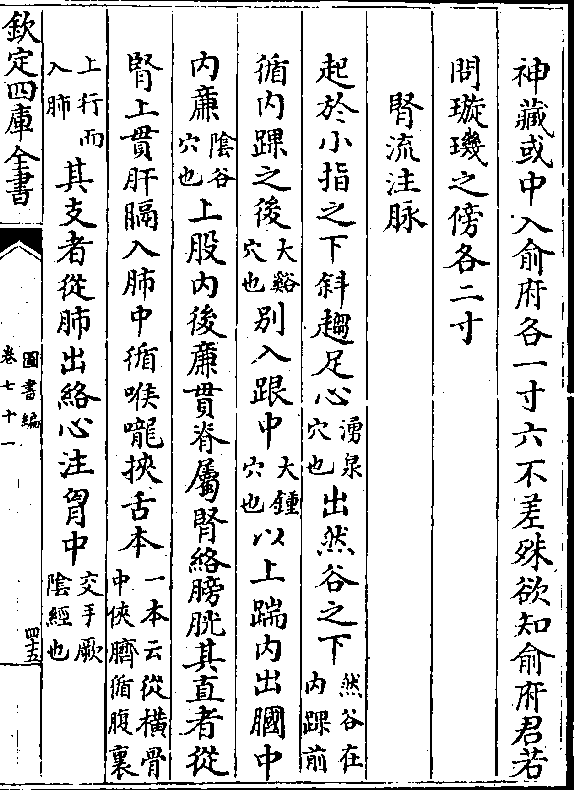 神藏或中入俞府各一寸六不差殊欲知俞府君若
問璇璣之傍各二寸
腎流注脉
起於小指之下斜趨足心湧泉穴也出然谷之下然谷在内踝前
循内踝之後大谿穴也别入跟中大鍾穴也以上踹内出膕中
内亷陰谷穴也上股内後亷貫脊屬腎絡膀胱其直者從
腎上貫肝膈入肺中循喉嚨挾舌本一本云從橫骨中俠臍循腹裏
上行而入肺其支者從肺出絡心注胷中交手厥陰經也
欽定四庫全書
圖書編
卷七十一
四十五